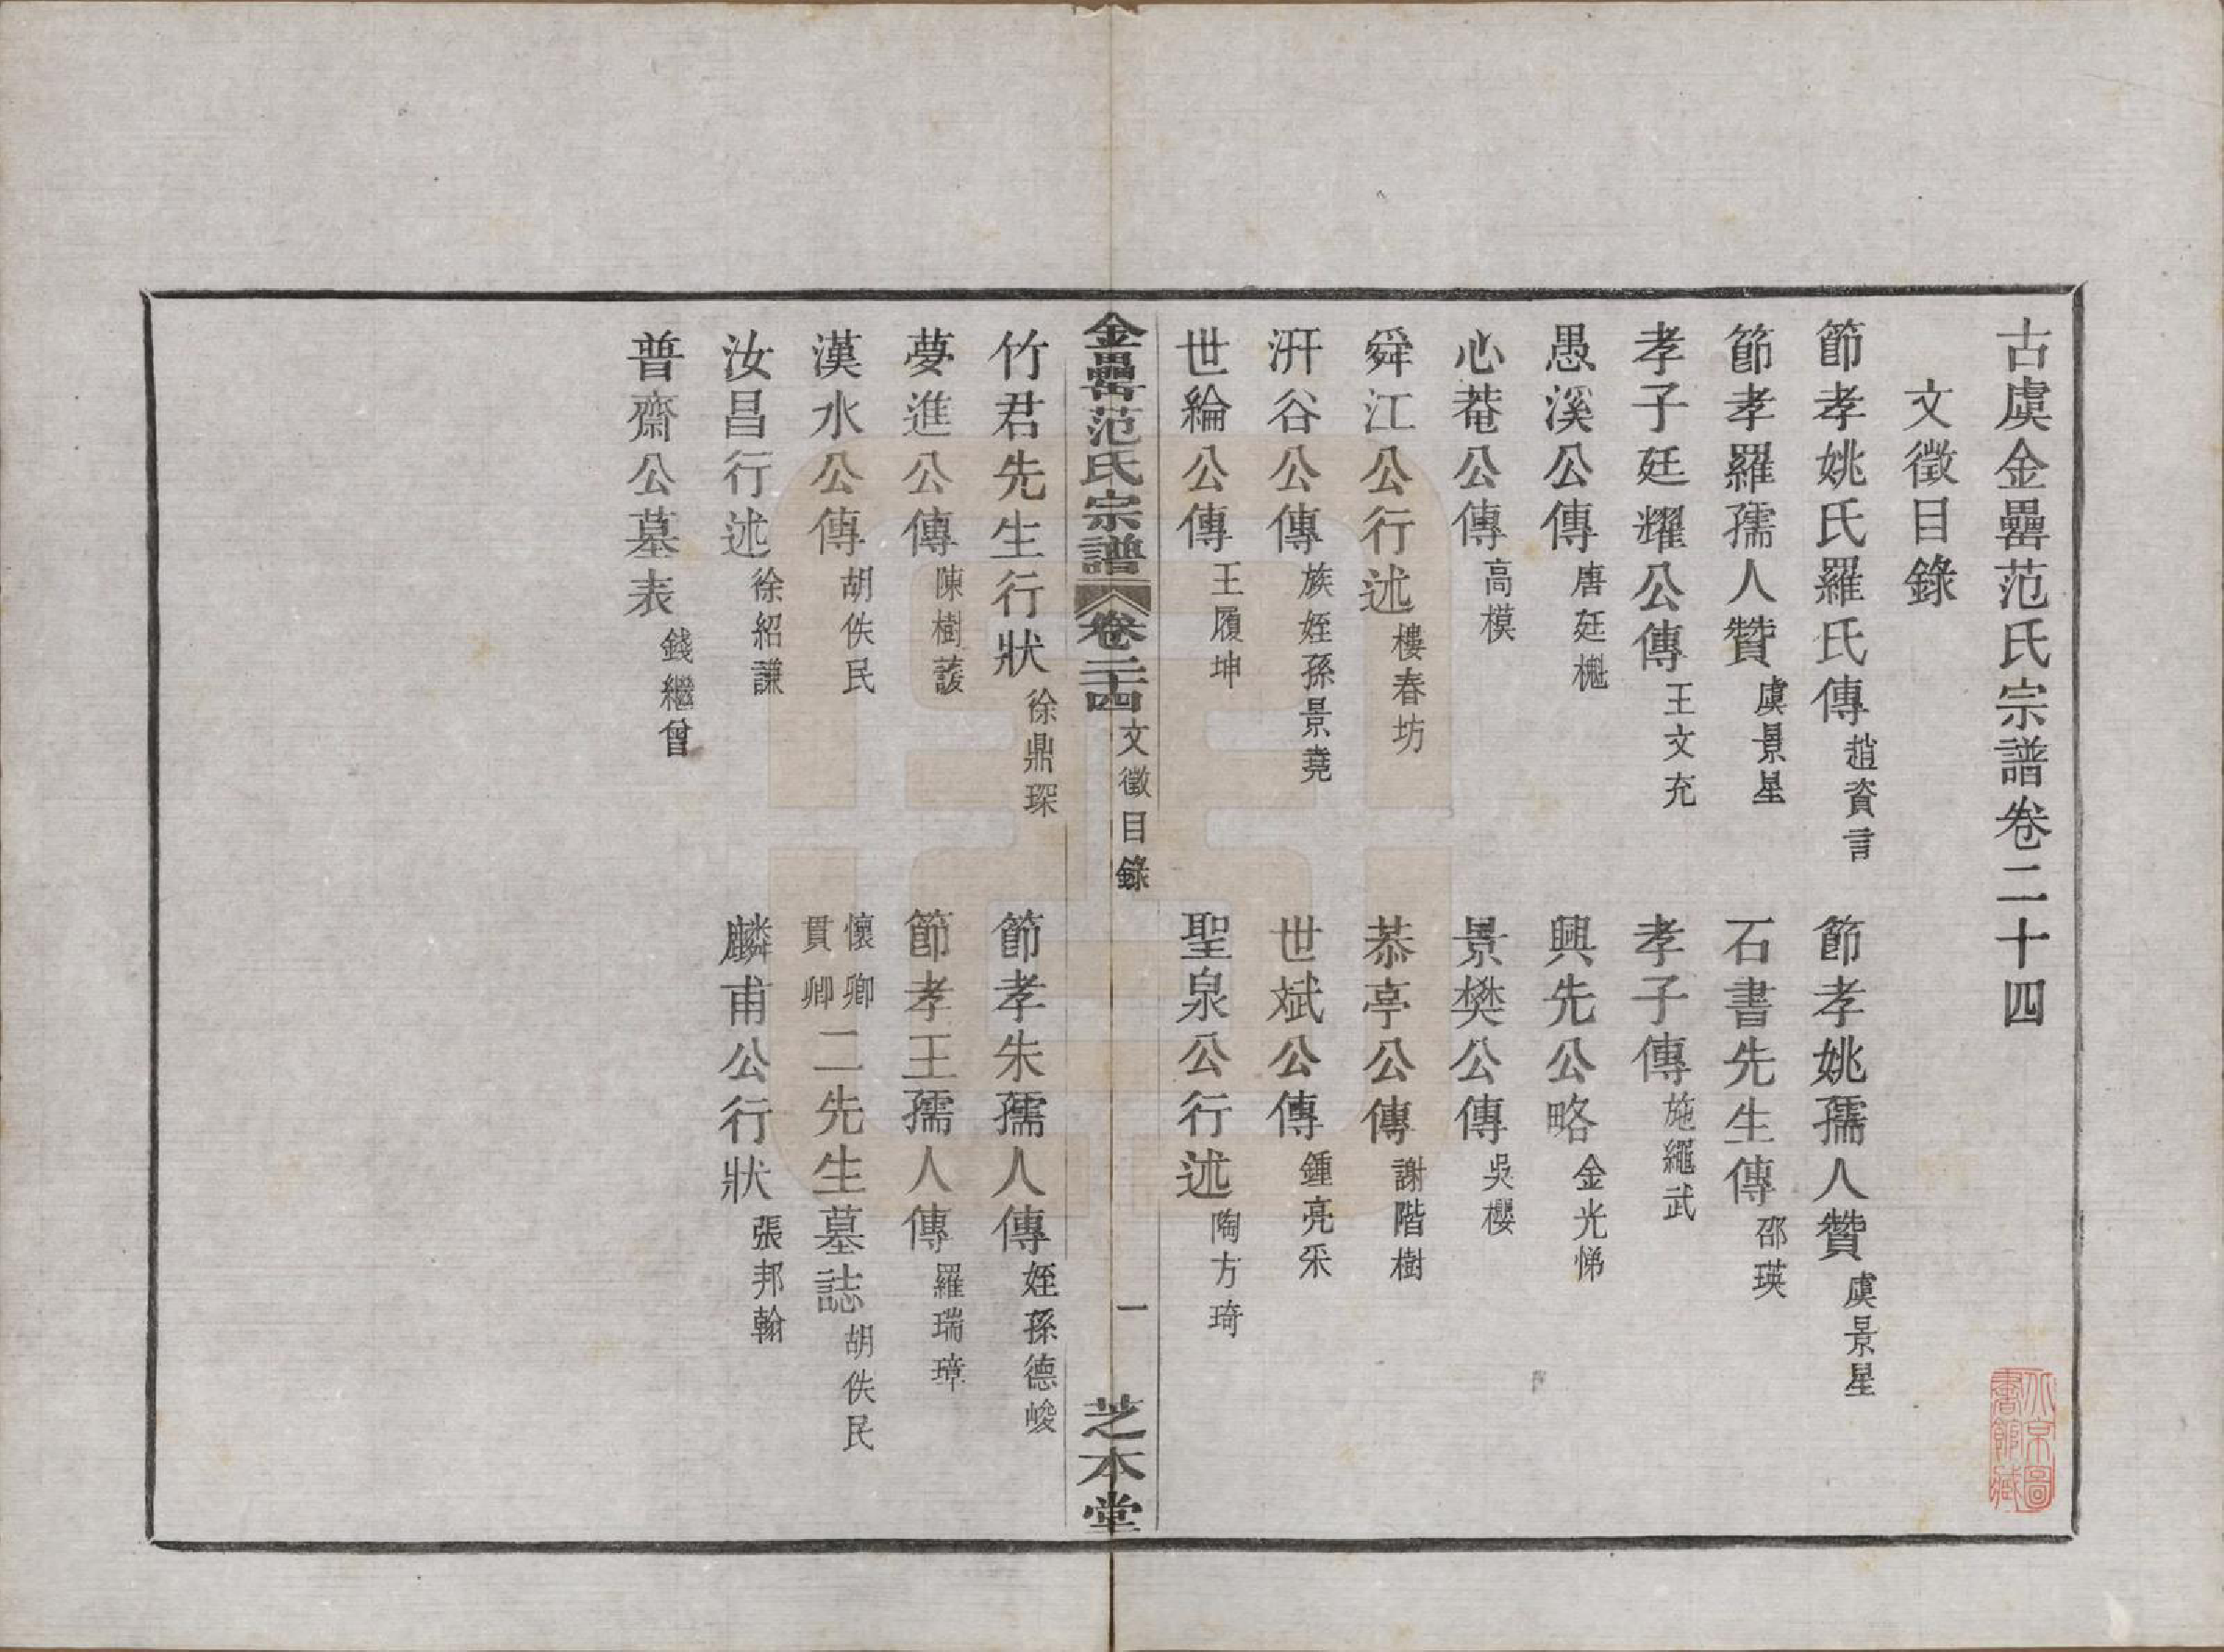 古虞金罍范氏宗譜卷二十四
文徵目錄
節孝姚氏羅氏傳 趙資言 節孝姚孺人贊 虞景星
節孝羅孺人贊 虞景星 石書先生傳 邵瑛
孝子廷耀公傳 王文充 孝子傳 施繩武
愚溪公傳 唐廷櫆 興先公略 金光悌
心菴公傳 高模 景樊公傳 吳櫻
舜江公行述 樓春坊 恭亭公傳 謝階樹
汧谷公傳 族姪孫景堯 世斌公傳 鍾亮采
世綸公傳 王履坤 聖泉公行述 陶方琦
金罍范氏宗譜 卷二十四 文徵目錄 一 芝本堂
竹君先生行狀 徐鼎琛 節孝朱孺人傳 姪孫德峻
夢進公傳 陳樹蘐 節孝王孺人傳 羅瑞璋
漢水公傳 胡佚民 懷卿貫卿二先生墓誌 胡佚民
汝昌行述 徐紹謙 麟甫公行狀 張邦翰
普齋公墓表 錢繼曾
北京圖書館藏